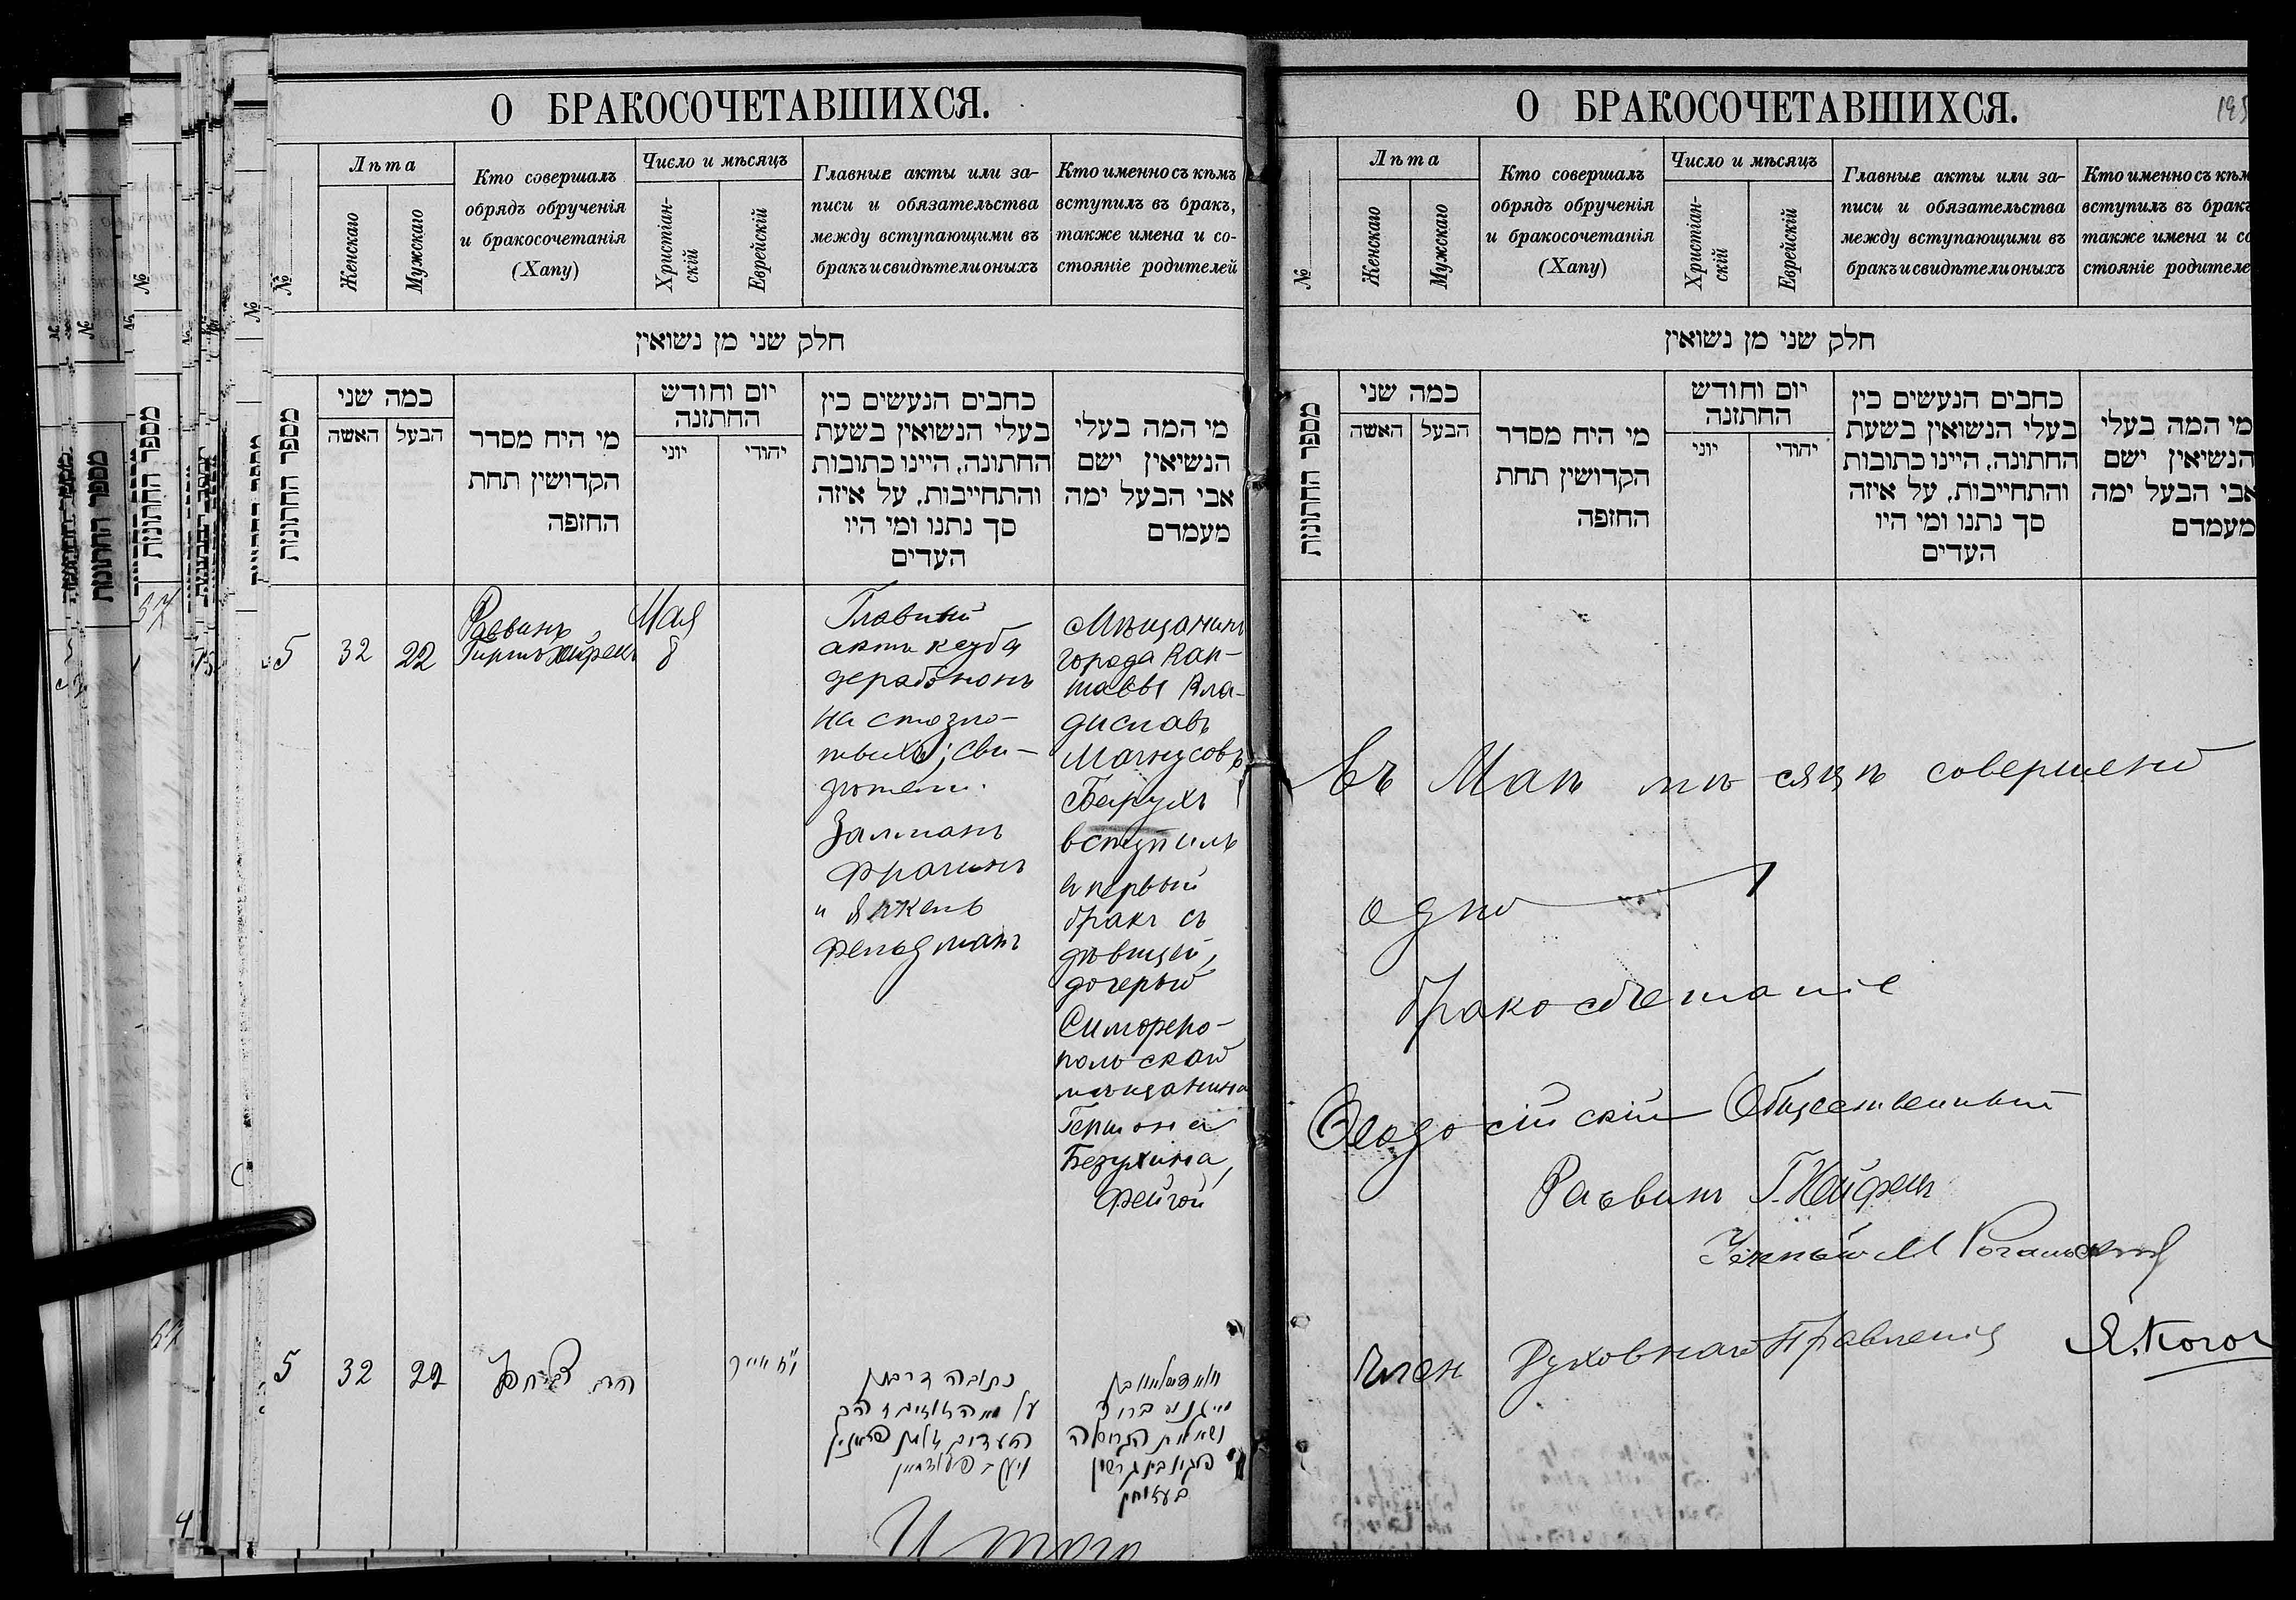 О БРАКОСОЧЕТАВШИХСЯ.
№
Лѣта
Женскаго
Мужскаго
Кто совершалъ
обрядъ обрученія
и бракосочетанія
(Хапу)
Число и мѣсяцъ
Христіан-
скій
Еврейскій
Главные акты или за-
писи и обязательства
между вступающими въ
бракъ и свидѣтели оныхъ
Кто именно съ кѣмъ
вступилъ въ бракъ,
также имена и со-
стояніе родителей
חלק שני מן נשואין
מספר החתונות
כמה שני
האשה
הבעל
מי היח מסדר
הקדושין תחת
החזפה
יום וחודש
החתזנה
יוני
יהודי
כחבים הנעשים כין
בעלי הנשואין בשעת
החתונה, היינו כתובות
והתחייבות, על איזה
סך נתנו ומי היו
העדים
מי המה בעלי
הנשיאין ישם
אבי הבעל ימה
מעמדם
5
32
22
Раввинъ
Гиршъ Хайфецъ
Мая
8
Главный
актъ кезуба
дерабононъ
на сто зло-
тыхъ; сви-
дѣтели.
Залманъ
Фрагинъ
и Янкель
Фельдманъ
Мѣщанинъ
города Вар-
шавы Вла-
диславъ
Магнусовъ
Барухъ
вступилъ
въ первый
бракъ съ
дѣвицей,
дочерью
Симферо-
польскаго
мѣщанина
Гершона
Безухина,
Фейгой
5
32
22
כתובה דרבנן
על
העדים זלמן פראגין
ברוך
בת גרשון
Итого
О БРАКОСОЧЕТАВШИХСЯ.
195
№
Лѣта
Женскаго
Мужскаго
Кто совершалъ
обрядъ обрученія
и бракосочетанія
(Хапу)
Число и мѣсяцъ
Христіан-
скій
Еврейскій
Главные акты или за-
писи и обязательства
между вступающими въ
бракъ и свидѣтели оныхъ
Кто именно съ кѣм
вступилъ въ бракъ
также имена и со
стояніе родителе
חלק שני מן נשואין
מספר החתונות
כמה שני
האשה
הבעל
מי היח מסדר
הקדושין תחת
החזפה
יום וחודש
החתזנה
יוני
יהודי
כחבים הנעשים כין
בעלי הנשואין בשעת
החתונה, היינו כתובות
והתחייבות, על איזה
סך נתנו ומי היו
העדים
מי המה בעלי
הנשיאין ישם
אבי הבעל ימה
מעמדם
Въ Маѣ мѣсяцѣ совершено
одно 1
бракосочетаніе
Ѳеодосійскій Общественный
Раввинъ Г. Хайфецъ
Ученый М Рогальскій
Членъ Духовнаго Правленія Я. Коган